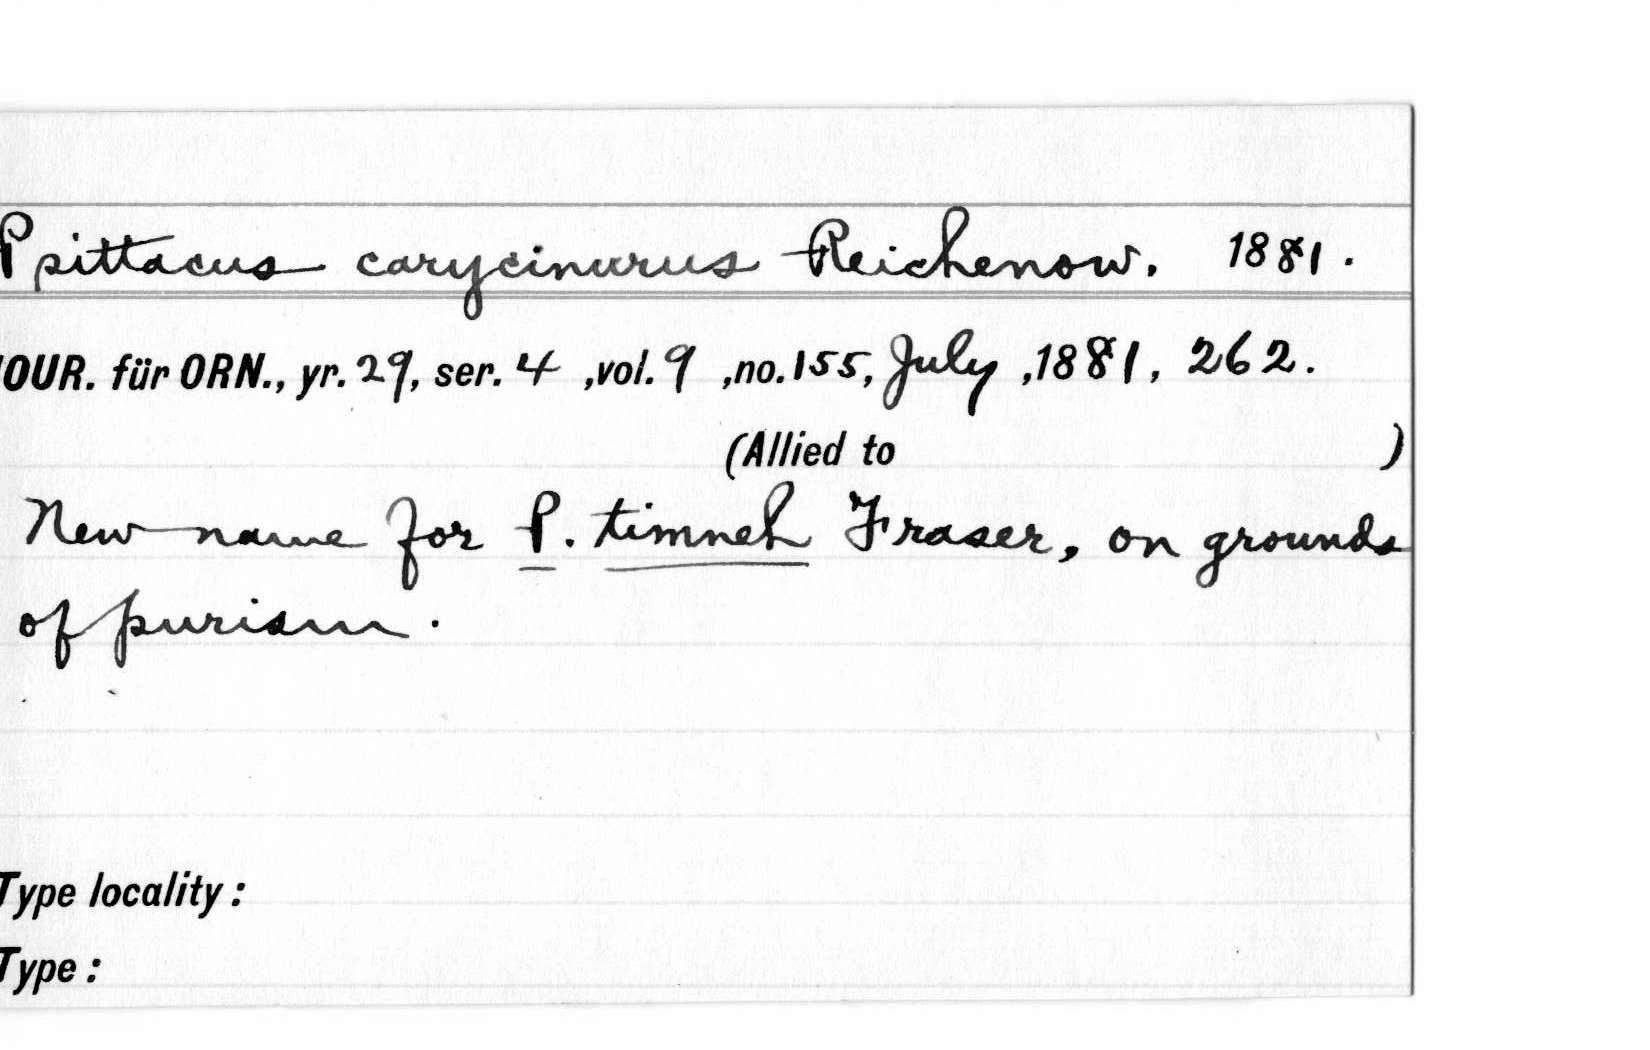 Psittacus carycinurus Reichenow. 1881.
JOUR. für ORN., yr. 29, ser. 4 ,vol. 9 ,no. 155, July ,1881, 262.
(Allied to )
New name for P. timneh Fraser, on grounds
of purism.
Type locality:
Type: